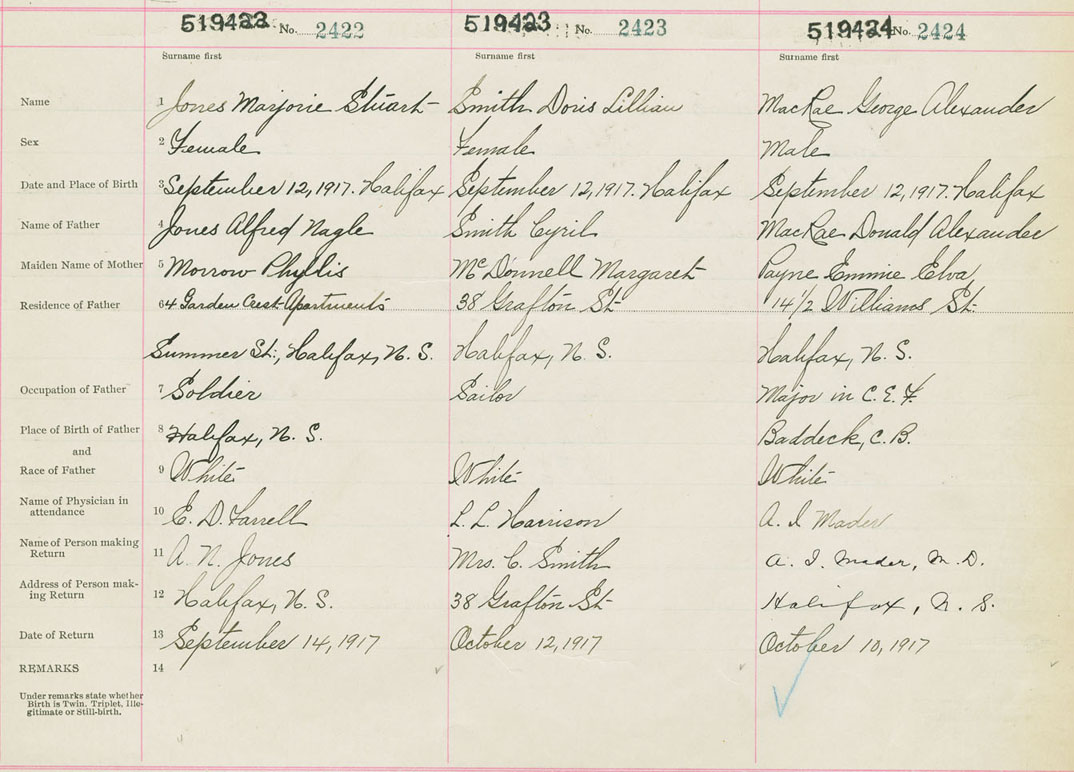 519422 No. 2422 519423 No. 2423 519424 No. 2424
Surname first Surname first Surname first
Name 1 Jones Marjorie Stuart Smith Doris Lillian MacRae George Alexander
Sex 2 Female Female Male
Date and Place of Birth 3 September 12, 1917. Halifax September 12, 1917. Halifax September 12, 1917. Halifax
Name of Father 4 Jones Alfred Nagle Smith Cyril MacRae Donald Alexander
Maiden Name of Mother 5 Morrow Phyllis McDonnell Margaret Payne Emmie Elva
Residence of Father 6 4 Garden Crest Apartments 38 Grafton St. 14 1/2 Williams St.
Summer St., Halifax, N. S. Halifax, N. S. Halifax, N. S.
Occupation of Father 7 Soldier Sailor Major in C. E. F.
Place of Birth of Father 8 Halifax, N. S. Baddeck, C. B.
and
Race of Father 9 White White White
Name of Physician in
attendance 10 E. D. Farrell L. L. Harrison A. I. Mader
Name of Person making
Return 11 A. N. Jones Mrs. C. Smith A. I. Mader, M. D.
Address of Person mak-
ing Return 12 Halifax, N. S. 38 Grafton St Halifax, N. S.
Date of Return 13 September 14, 1917 October 12, 1917 October 10, 1917
REMARKS 14
Under remarks state whether
Birth is Twin. Triplet, Ille-
gitimate or Still-birth.